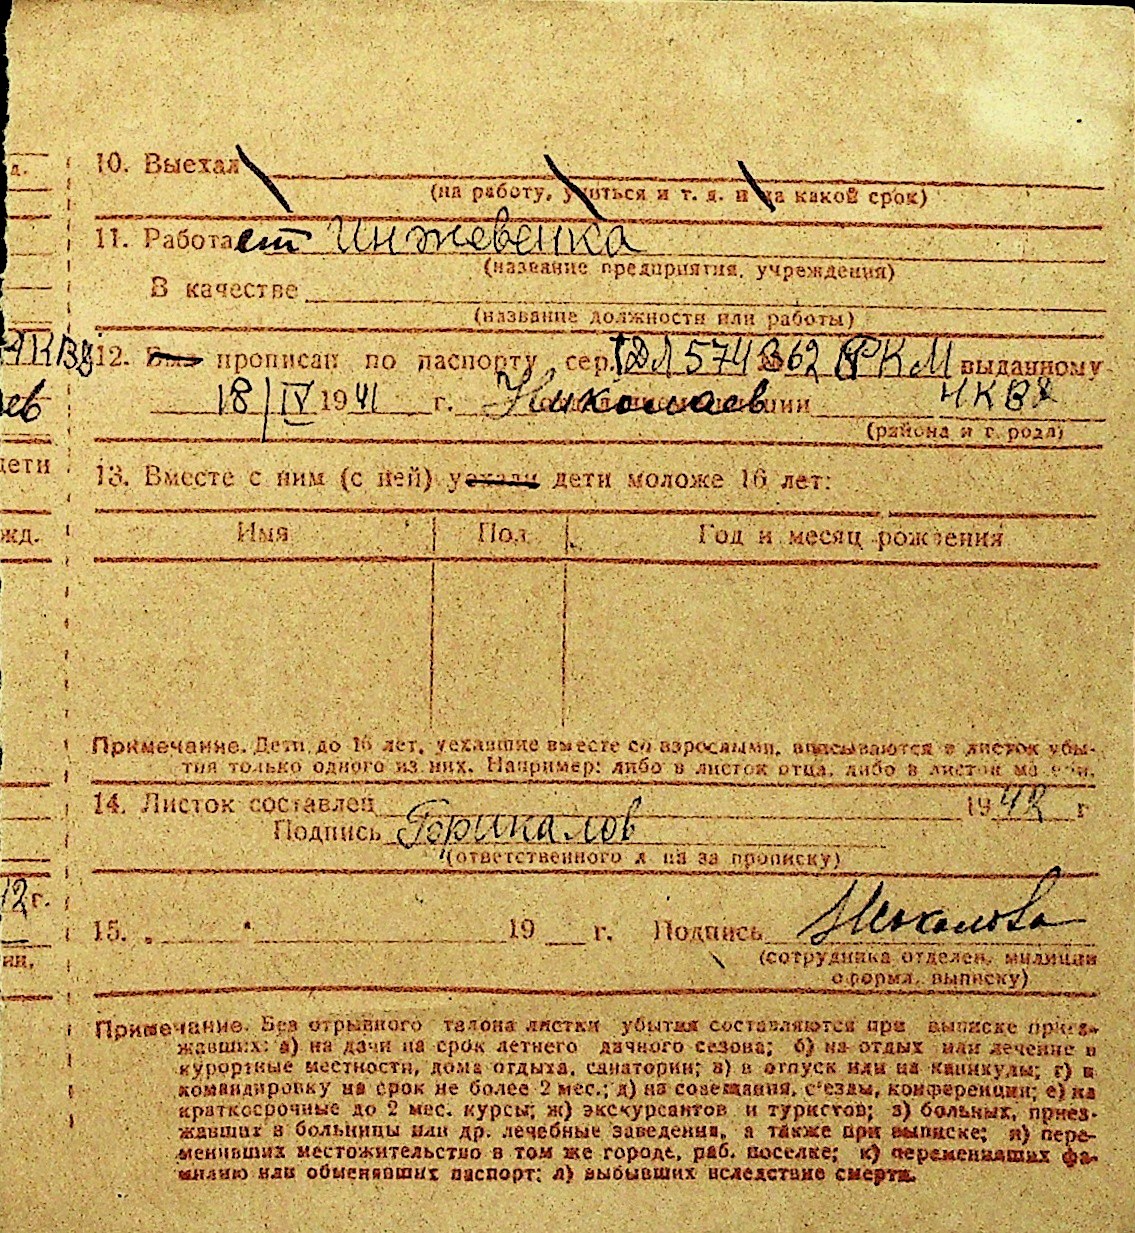 д.
10. Выехал
(на работу, учиться и т. д. и на какой срок)
11. Работает Инжевенка
(название предприятия, учреждения)
В качестве
(название должности или работы)
НКВД
12. Был прописан по паспорту сер. ДЛ 574862 РКМ выданному
ев
18/IV 1941 г. Николаев НКВД
(района и города)
дети
13. Вместе с ним (с ней) уехали дети моложе 16 лет:
жд.
Имя Пол Год и месяц рождения
Примечание. Дети до 16 лет, уехавшие вместе со взрослыми, вписываются в листок убы-
тия только одного из них. Например: либо в листок отца, либо в листок матери.
14. Листок составлен 1942 г
Подпись
(ответственного л-ца за прописку)
12 г.
15. „ “ 19 г. Подпись
ии,
(сотрудника отделен. милиции
оформл. выписку)
Примечание. Без отрывного талона листки убытия составляются при выписке приез-
жавших: а) на дачи на срок летнего дачного сезона; б) на отдых или лечение в
курортные местности, дома отдыха, санатории; в) в отпуск или на каникулы; г) в
командировку на срок не более 2 мес.; д) на совещания, с'езды, конференции; е) на
краткосрочные до 2 мес. курсы; ж) экскурсантов и туристов; з) больных, приез-
жавших в больницы или др. лечебные заведения, а также при выписке; и) пере-
менивших местожительство в том же городе, раб. поселке; к) переменивших фа-
милию или обменявших паспорт; л) выбывших вследствие смерти.